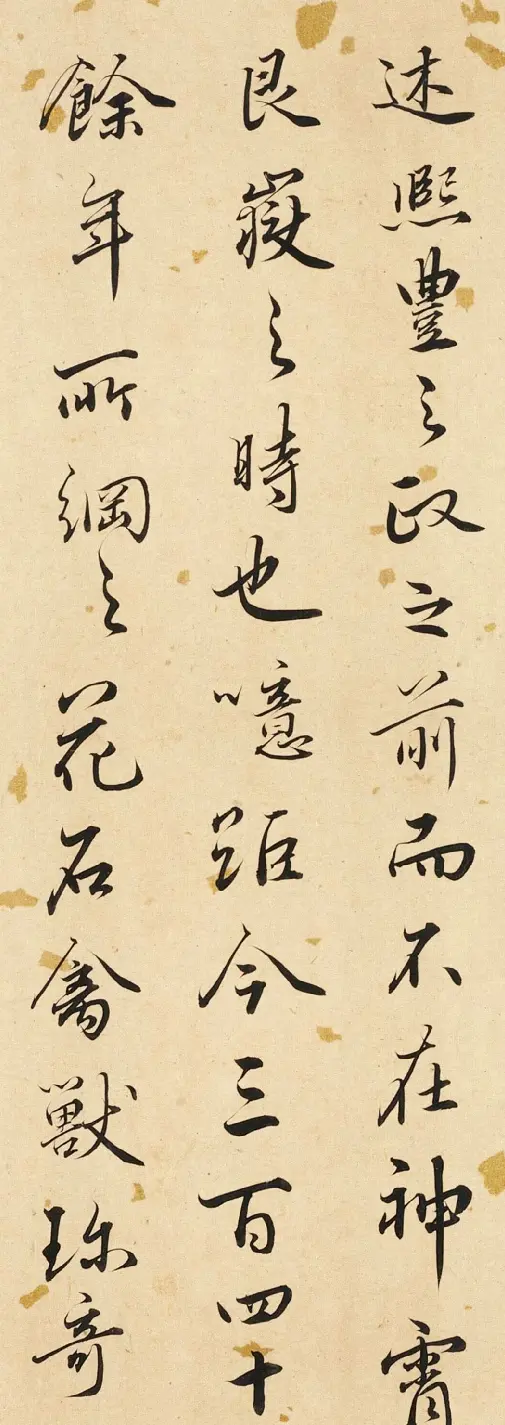 述熙豐之政之前而不在神霄
艮嶽之時也噫距今三百四十
餘年所綱之花石禽獸珎奇